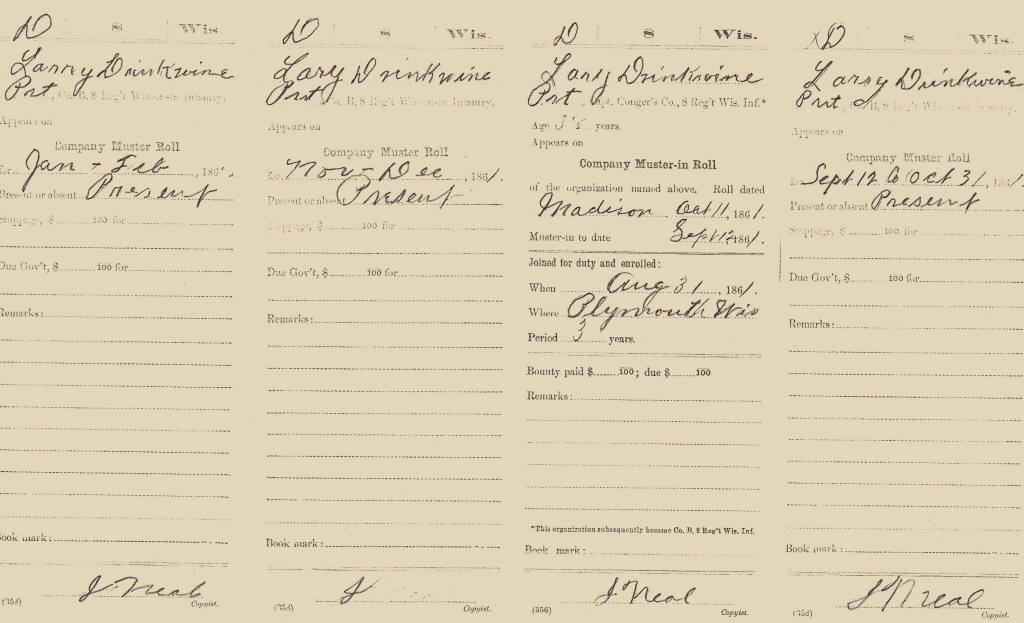 D 8 Wis.
Larry Drinkwine
Pvt, Co. B, 8 Reg't Wisconsin Infantry.
Appears on
Company Muster Roll
for Jan - Feb, 186
Present or absent Present
Stoppage, $ 100 for
Due Gov't, $ 100 for
Remarks:
Book mark:
J Neal
(358) Copyist.
D 8 Wis.
Lary Drinkwine
Pvt, Co. B, 8 Reg't Wisconsin Infantry.
Appears on
Company Muster Roll
for Nov - Dec, 1861.
Present or absent Present
Stoppage, $ 100 for
Due Gov't, $ 100 for
Remarks:
Book mark:
J
(358) Copyist.
D 8 Wis.
Lary Drinkwine
Pvt, Capt. Conger's Co., 8 Reg't Wis. Inf.*
Age years.
Appears on
Company Muster-in Roll
of the organization named above. Roll dated
Madison Oct 11, 1861.
Muster-in to date Sept 12, 1861.
Joined for duty and enrolled:
When Aug 31, 1861.
Where Plymouth Wis
Period 3 years.
Bounty paid $ 100; due $ 100
Remarks:
*This organization subsequently became Co. B, 8 Reg't Wis. Inf.
Book mark:
J Neal
(356) Copyist.
XD 8 Wis.
Larry Drinkwine
Pvt, Co. B, 8 Reg't Wisconsin Infantry.
Appears on
Company Muster Roll
for Sept 12 to Oct 31, 1861.
Present or absent Present
Stoppage, $ 100 for
Due Gov't, $ 100 for
Remarks:
Book mark:
J Neal
(358) Copyist.